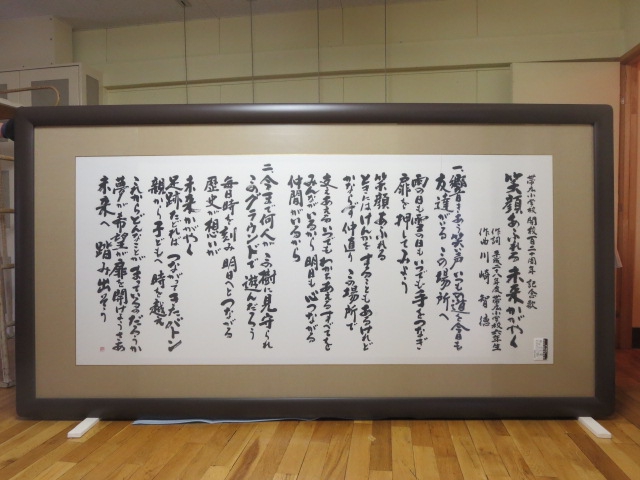 帯広小学校 開校百二十周年 記念歌
笑顔あふれる 未来かがやく
作詞 平成二十八年度 帯広小学校六年生
作曲 川崎智徳
一、響きあう 笑い声 いつも 今日も
友達がいる この場所へ
雨の日も雪の日も いつでも手をつなぎ
扉を押してみよう
笑顔あふれる
ときにはけんかをすることもあるけれど
かならず仲直り この場所で
支えあえる いつでもわかちあえる すべてを
みんながいるから 明日も 心つながる
仲間がいるから
二、今まで何人が この樹に 見守られ
このグラウンドで 遊んだだろう
毎日時を刻み 明日へとつながる
歴史が想いが
未来かがやく
足跡たどれば つながってきたバトン
親から子どもへ 時を越え
これからどんなことが まっているのだろうか
夢が希望が扉を開ける さあ
未来へ 踏み出そう